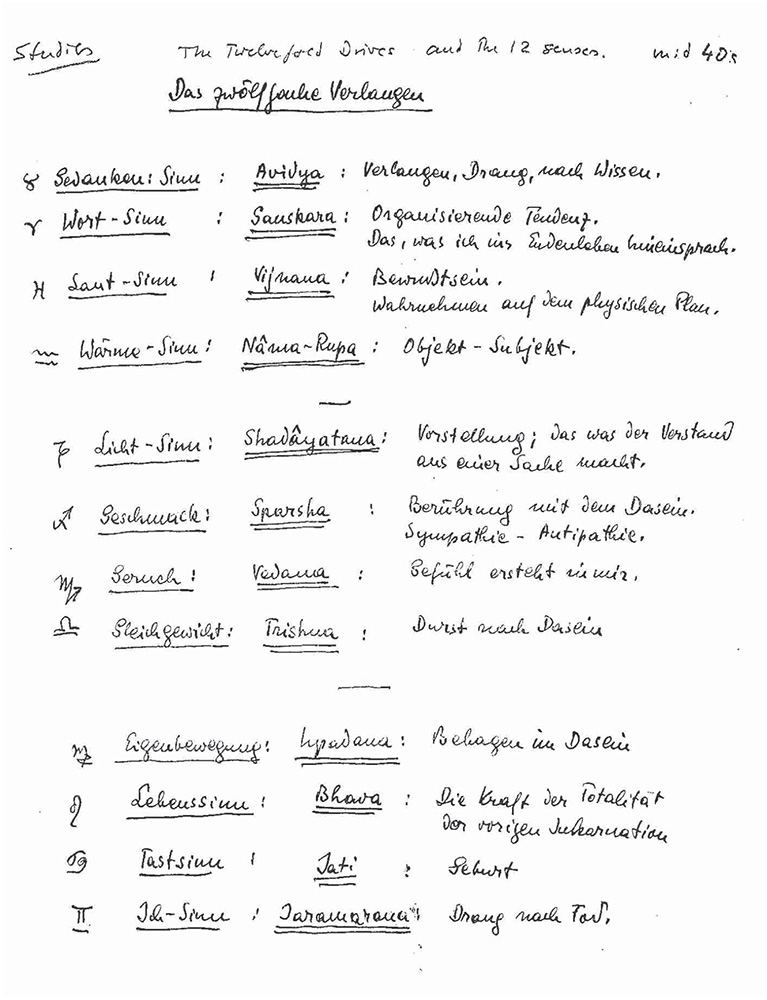 Studies The Twelvefold Drives and the 12 senses. mid 40's
Das zwölffache Verlangen
♉ Gedanken: Sinn : Avidya : Verlangen, Drang, nach Wissen.
♈ Wort-Sinn : Sanskara : Organisierende Tendenz.
Das, was ich ins Erdenleben hineinsprach.
♓ Laut-Sinn : Vijnana : Bewußtsein.
Wahrnehmen auf dem physischen Plan.
♒ Wärme-Sinn : Nâma-Rupa : Objekt-Subjekt.
—
♑ Licht-Sinn : Shadâyatana : Vorstellung; das was der Verstand
aus einer Sache macht.
♐ Geschmack : Sparsha : Berührung mit dem Dasein.
Sympathie - Antipathie.
♏ Geruch : Vedana : Gefühl ersteht in mir.
♎ Gleichgewicht : Trishna : Durst nach Dasein
—
♍ Eigenbewegung : Upadana : Behagen im Dasein
♌ Lebenssinn : Bhava : Die Kraft der Totalität
der vorigen Inkarnation
♋ Tastsinn : Jati : Geburt
♊ Ich-Sinn : Jaramarana : Drang nach Tod.